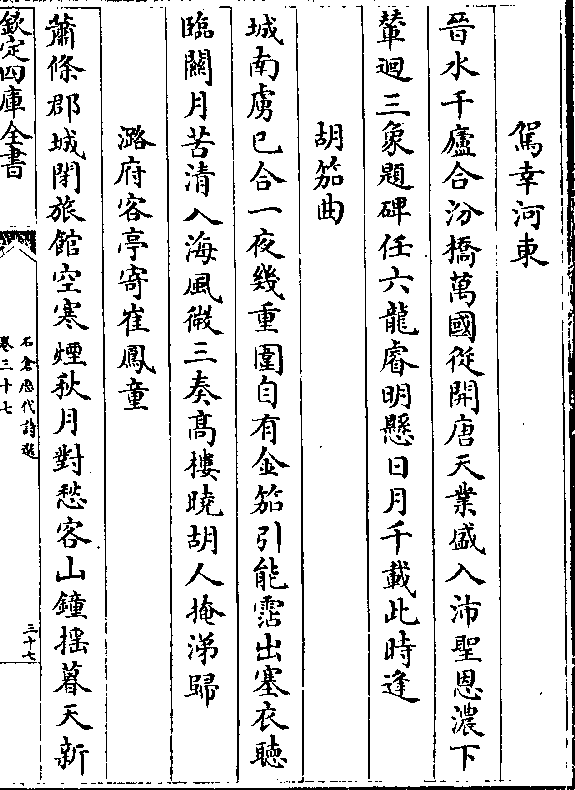 駕幸河東
晉水千廬合汾橋萬國從開唐天業盛入沛聖恩濃下
輦迴三象題碑任六龍睿明懸日月千載此時逢
胡笳曲
城南虜已合一夜幾重圍自有金笳引能霑出塞衣聽
臨關月苦清入海風微三奏髙樓曉胡人掩涕歸
潞府客亭寄崔鳳童
蕭條郡城閉旅館空寒煙秋月對愁客山鐘摇暮天新
欽定四庫全書
石倉歷代詩選
卷三十七
三十七